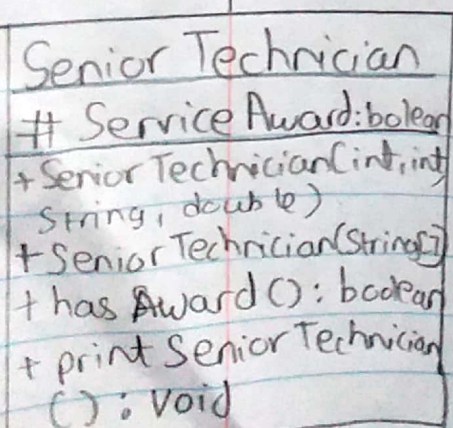 Senior Technician
# Service Award:bolean
+Senior Technician(int,int
String, double)
+Senior Technician(String[]
+ has Award(): boolean
+ print Senior Technician
(): Void